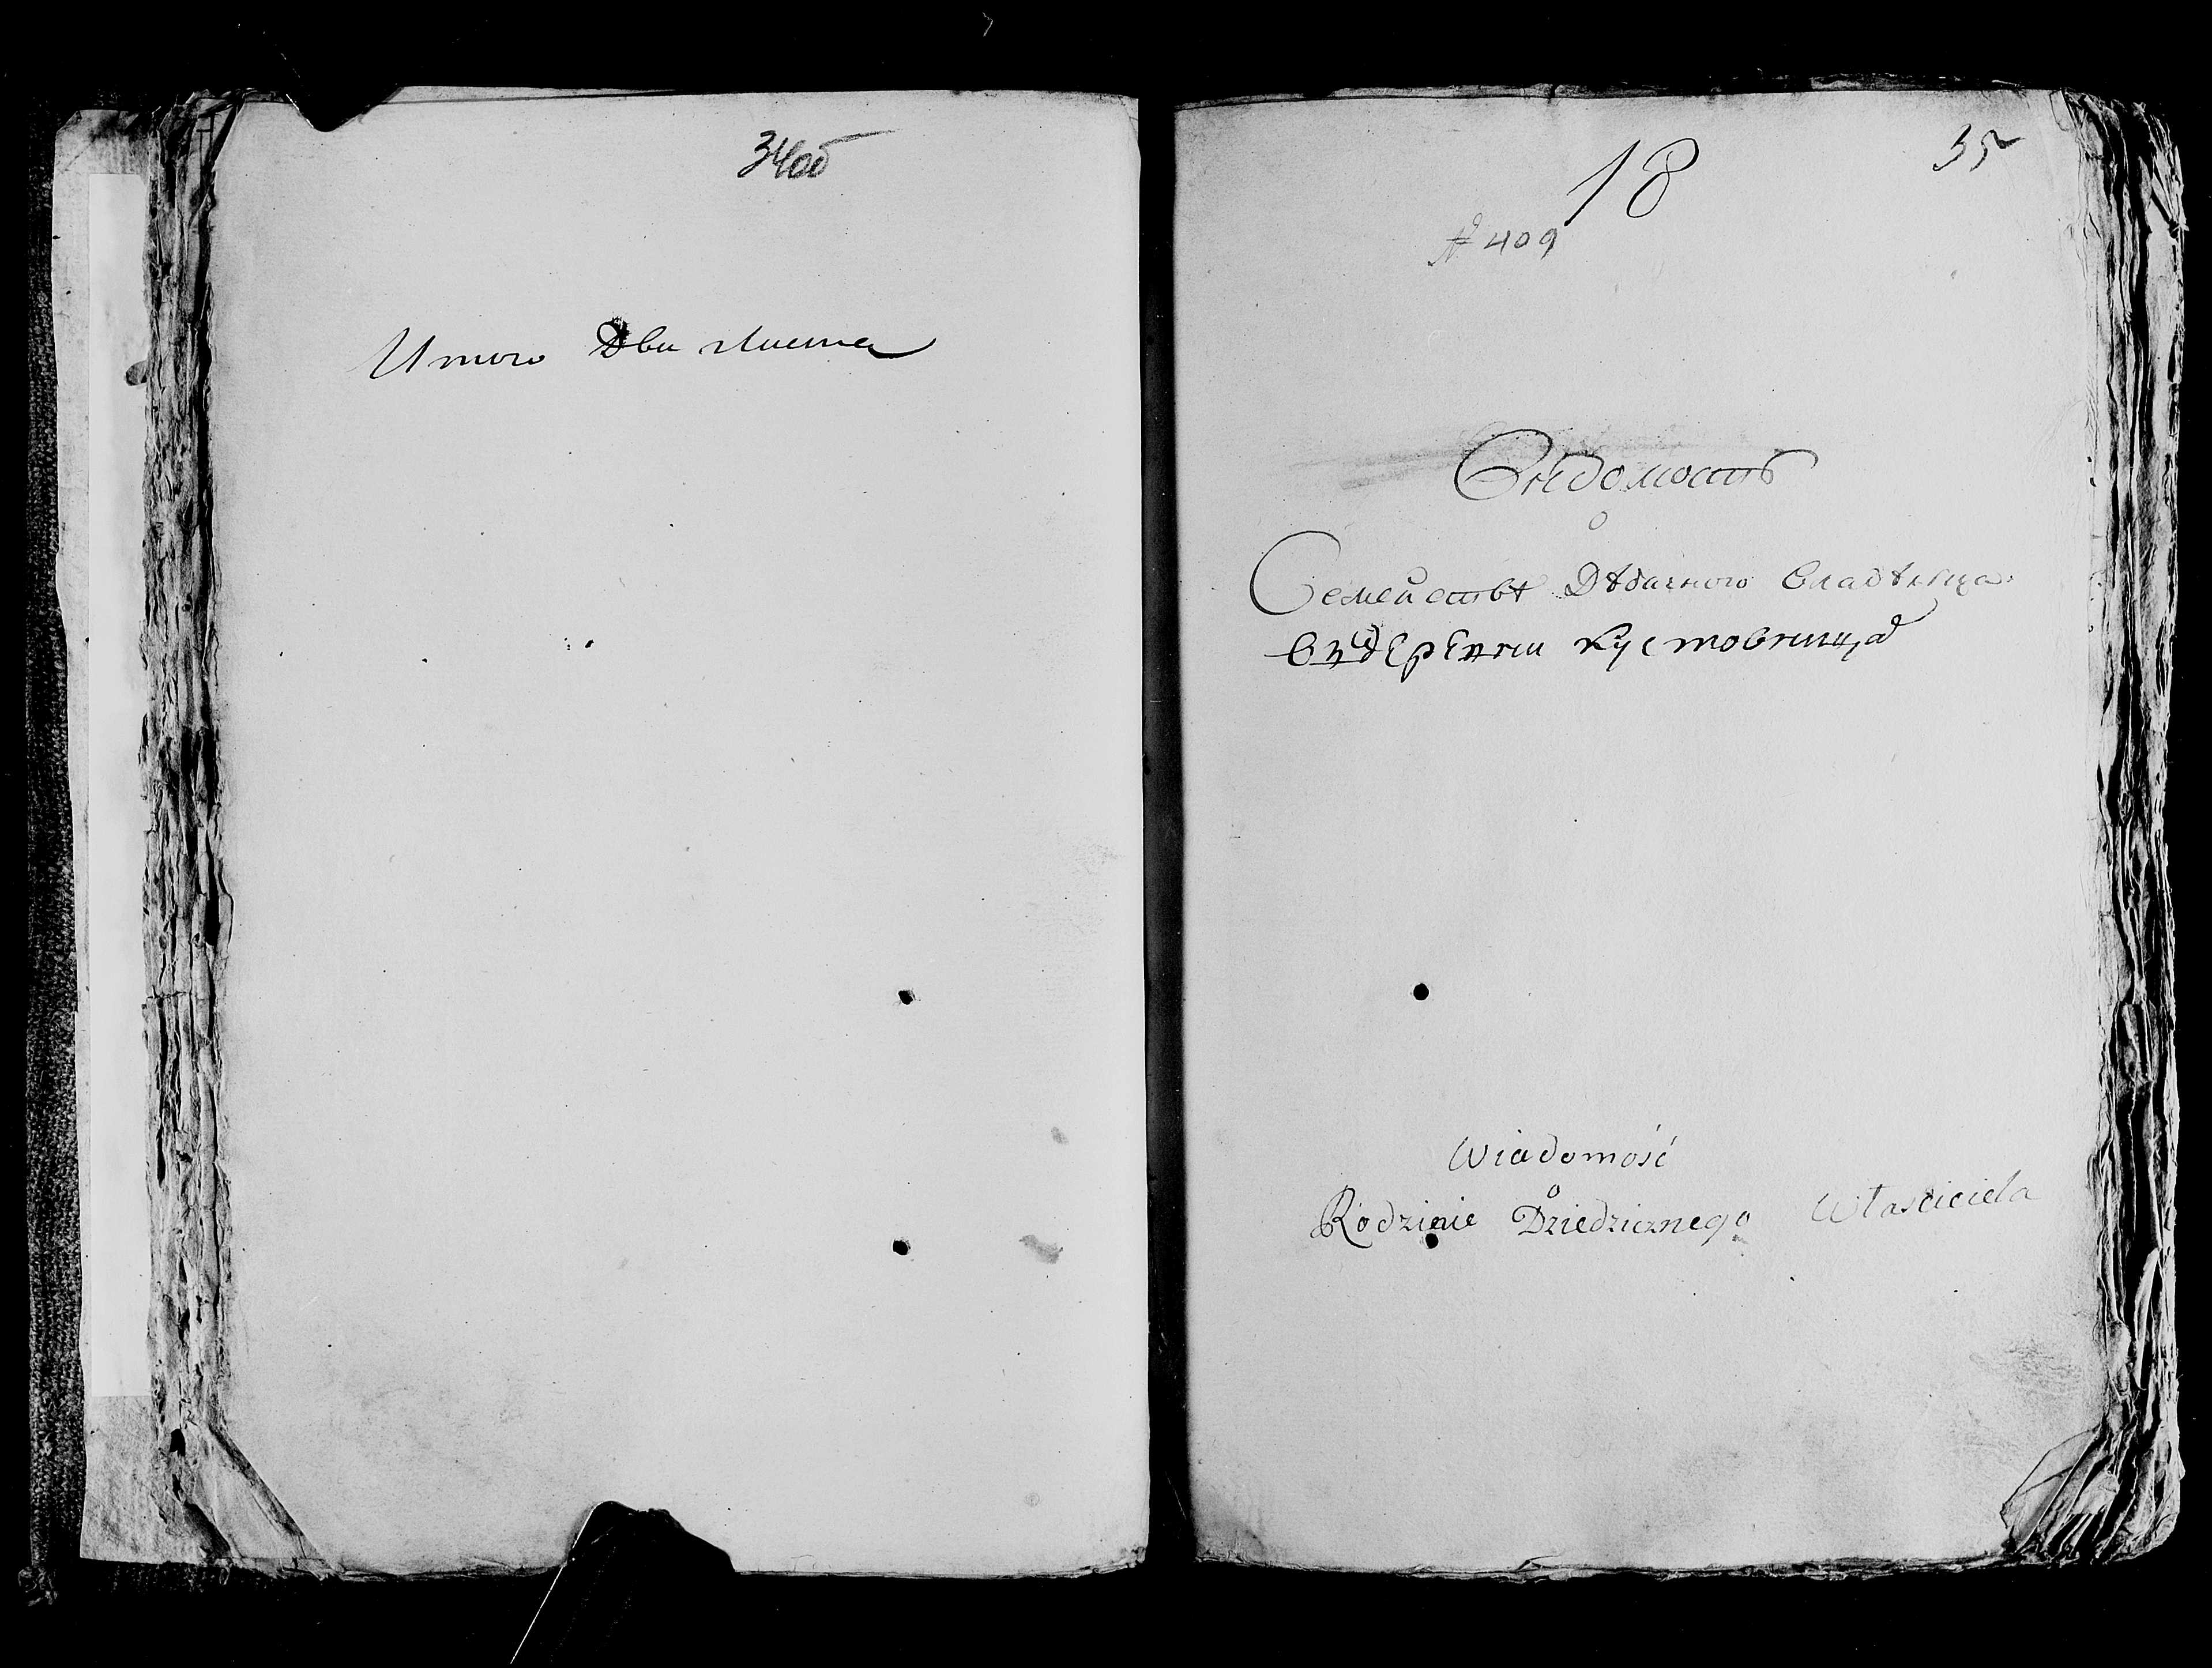 34об
Итого два листа
18
35
№ 409
Вѣдомость
о
Семействѣ Дѣдичного Владѣльца
в деревни Кустовница
Wiadomość
o
Rodzinie Dziedzicznego Właściciela